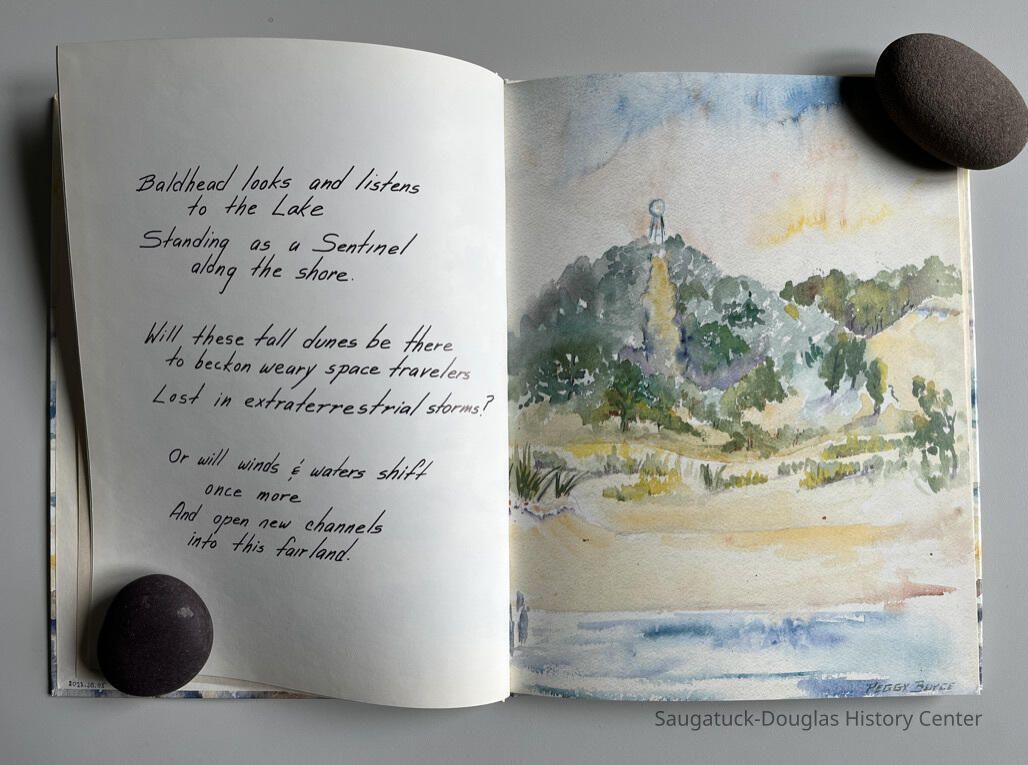 Baldhead looks and listens
to the Lake
Standing as a Sentinel
along the shore.
Will these tall dunes be there
to beckon weary space travelers
Lost in extraterrestrial storms?
Or will winds & waters shift
once more
And open new channels
into this fair land.
PEGGY BOYCE
Saugatuck-Douglas History Center